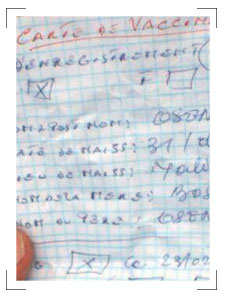 CARTE DE VACCIN
D'ENREGISTREMENT (
X
OM & POST NOM: OSEN
ATE DE NAISS: 31/
IEU DE NAISS: YALI
NOM DE LA MERE: BOS
NOM DU PERE: OSEN
X 23/02